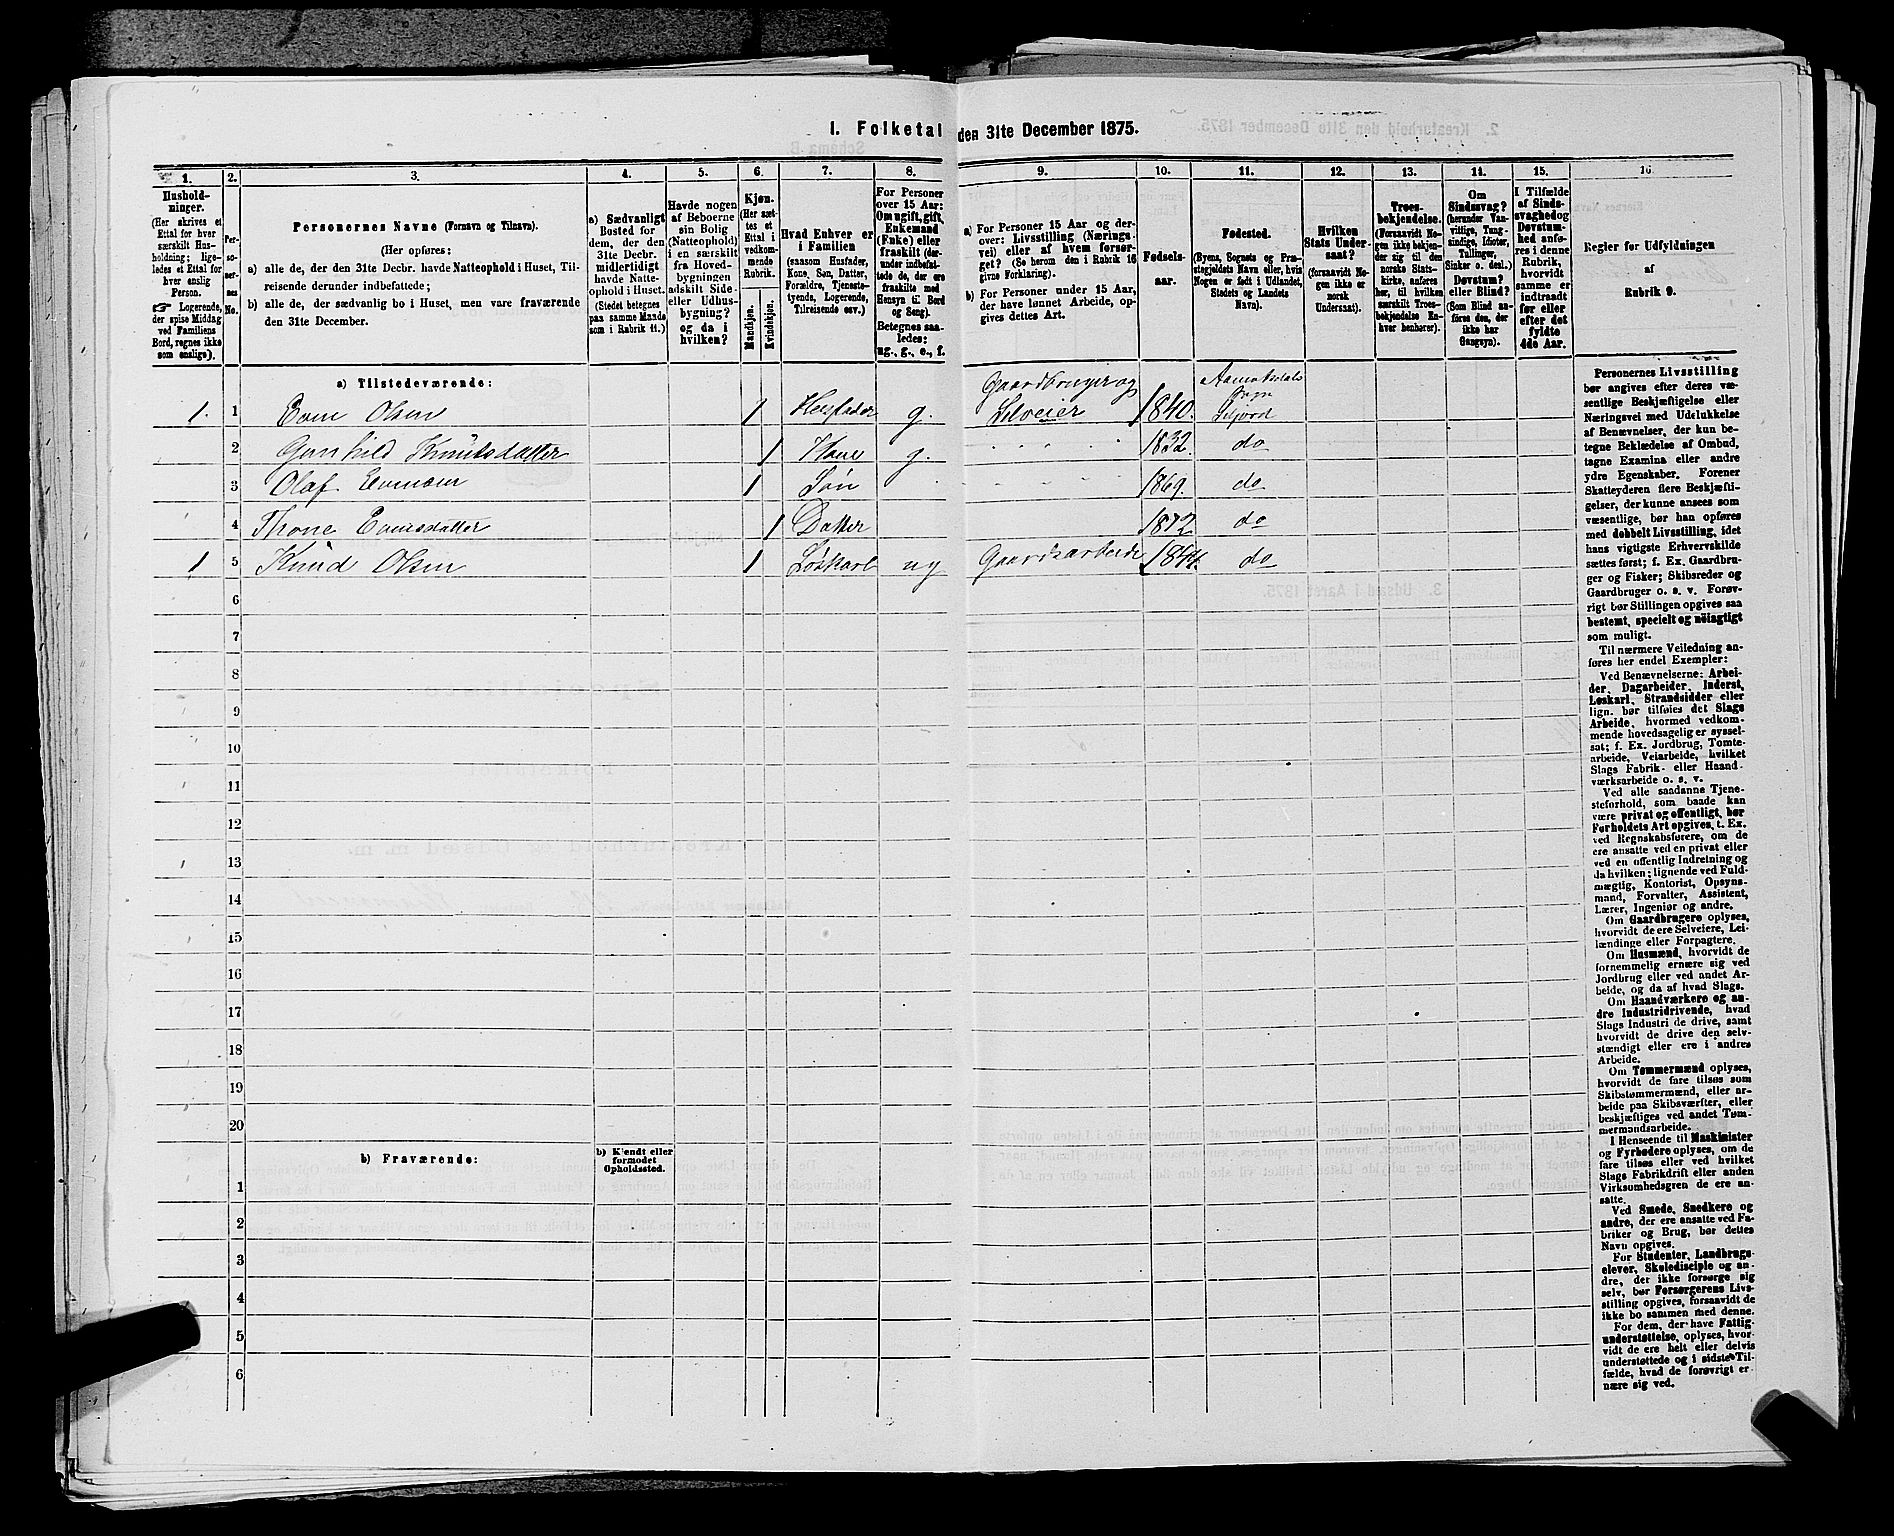 1. Folketal den 31te December 1875.
1.
2.
3.
4.
5.
6.
7.
8.
9.
10.
11.
12.
13.
14.
15.
16.
Hushold-
ninger.
(Her skrives et
Ettal for hver
særskilt Hus-
holdning; lige-
ledes et Ettal for
hver enslig
Person.
☞ Logerende,
der spise Middag
ved Familiens
Bord, regnes ikke
som enslige).
Per-
so-
ner-
nes
No.
Personernes Navne (Fornavn og Tilnavn).
(Her opføres:
a) alle de, der den 31te Decbr. havde Natteophold i Huset, Til-
reisende derunder indbefattede;
b) alle de, der sædvanlig bo i Huset, men vare fraværende
den 31te December.
a) Sædvanligt
Bosted for
dem, der den
31te Decbr.
midlertidigt
havde Natte-
ophold i Huset.
(Stedet betegnes
paa samme Maade
som i Rubrik 11.)
Havde nogen
af Beboerne
sin Bolig
(Natteophold)
i en særskilt
fra Hoved-
bygningen
adskilt Side-
eller Udhus-
bygning?
og da i
hvilken?
Kjøn.
(Her sæt-
tes et
Ettal i
vedkom-
mende
Rubrik.
Mandkjøn.
Kvindekjøn.
Hvad Enhver er
i Familien
(saasom Husfader,
Kone, Søn, Datter,
Forældre, Tjeneste-
tyende, Logerende,
Tilreisende osv.)
For Personer
over 15 Aar:
Om ugift, gift,
Enkemand
(Enke) eller
fraskilt (her-
under indbefat-
tede de, der ere
fraskilte med
Hensyn til Bord
og Seng).
Betegnes saa-
ledes:
ug., g., e., f.
a) For Personer 15 Aar og der-
over: Livsstilling (Nærings-
vei) eller af hvem forsør-
get? (Se herom den i Rubrik 16
givne Forklaring).
b) For Personer under 15 Aar,
der have lønnet Arbeide, op-
gives dettes Art.
Fødsels-
aar.
Fødested.
(Byens, Sognets og Præ-
stegjeldets Navn eller, hvis
Nogen er født i Udlandet,
Stedets og Landets
Navn).
Hvilken
Stats Under-
saat?
(forsaavidt No-
gen ikke er
norsk
Undersaat).
Troes-
bekjendelse.
(Forsaavidt No-
gen ikke bekjen-
der sig til den
norske Stats-
kirke, anføres
her, til hvilken
særskilt Troes-
bekjendelse En-
hver henhører).
Om
Sindssvag?
(herunder Van-
vittige, Tung-
sindige, Idioter,
Tullinger,
Sinker o. desl.).
Døvstum?
eller Blind?
(Som Blind an-
føres den, der
ikke har
Gangsyn).
I Tilfælde
af Sinds-
svaghed og
Døvstum-
hed anfø-
res i denne
Rubrik,
hvorvidt
samme er
indtraadt
før eller
efter det
fyldte
4de Aar.
Regler for Udfyldningen
af
Rubrik 9.
a) Tilstedeværende:
1. 1 Even Olsen 1 Husfader g. Gaardbruger og Selveier 1840. Aamotsdals Sogn
2 Gunhild Knutsdatter 1 Kone g. " " " " 1832. do
3 Olaf Evensen 1 Søn " " " " 1869. do
4 Thone Evensdatter 1 Datter 1872 do
1 5 Knud Olsen 1 Løskarl ug Gaardsarbeide 1844. do
6
7
8
9
10
11
12
13
14
15
16
17
18
19
20
b) Fraværende:
b) Kjendt eller
formodet
Opholdssted.
1
2
3
4
5
6
Personernes Livsstilling
bør angives efter deres væ-
sentlige Beskjæftigelse eller
Næringsvei med Udelukkelse
af Benævnelser, der kun be-
tegne Beklædelse af Ombud,
tagne Examina eller andre
ydre Egenskaber. Forener
Skatteyderen flere Beskjæfti-
gelser, der kunne ansees som
væsentlige, bør han opføres
med dobbelt Livsstilling, idet
hans vigtigste Erhvervskilde
sættes først; f. Ex. Gaardbru-
ger og Fisker; Skibsreder og
Gaardbruger o. s. v. Forøv-
rigt bør Stillingen opgives saa
bestemt, specielt og nöiagtigt
som muligt.
Til nærmere Veiledning an-
føres her endel Exempler:
Ved Benævnelserne: Arbei-
der, Dagarbeider, Inderst,
Løskarl, Strandsidder eller
lign. bør tilføies det Slags
Arbeide, hvormed vedkom-
mende hovedsagelig er syssel-
sat; f. Ex. Jordbrug, Tomte-
arbeide, Veiarbeide, hvilket
Slags Fabrik- eller Haand-
værksarbeide o. s. v.
Ved alle saadanne Tjene-
steforhold, som baade kan
være privat og offentligt, bør
Forholdets Art opgives, t. Ex.
ved Regnskabsførere, om de
ere ansatte ved en privat eller
ved en offentlig Indretning og
da hvilken; lignende ved Fuld-
mægtig, Kontorist, Opsyns-
mand, Forvalter, Assistent,
Lærer, Ingeniør og andre.
Om Gaardbrugere oplyses,
hvorvidt de ere Selveiere, Lei-
lændinge eller Forpagtere.
Om Husmænd, hvorvidt de
fornemmelig ernære sig ved
Jordbrug eller ved andet Ar-
beide, og da af hvad Slags.
Om Haandværkere og an-
dre Industridrivende, hvad
Slags Industri de drive, samt
hvorvidt de drive den selv-
stændigt eller ere i andres
Arbeide.
Om Tømmermænd oplyses,
hvorvidt de fare tilsøs som
Skibstømmermænd, eller ar-
beide paa Skibsværfter, eller
beskjæftiges ved andet Tøm-
mermandsarbeide.
I Henseende til Maskinister
og Fyrbødere oplyses, om de
fare tilsøs eller ved hvilket
Slags Fabrikdrift eller anden
Virksomhedsgren de ere an-
satte.
Ved Smede, Snedkere og
andre, der ere ansatte ved Fa-
briker og Brug, bør dettes
Navn opgives.
For Studenter, Landbrugs-
elever, Skoledisciple og an-
dre, der ikke forsørge sig
selv, bør Forsørgerens Livs-
stilling opgives, forsaavidt de
ikke bo sammen med denne.
For dem, der have Fattig-
understøttelse, oplyses, hvor-
vidt de ere helt eller delvis
understøttede og i sidste Til-
fælde, hvad de forøvrigt er-
nære sig ved.